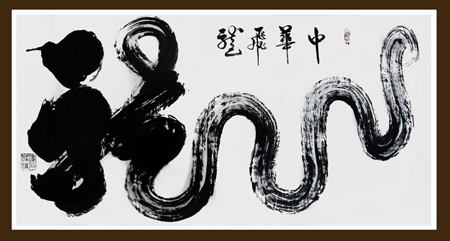 中華飛龍
龍